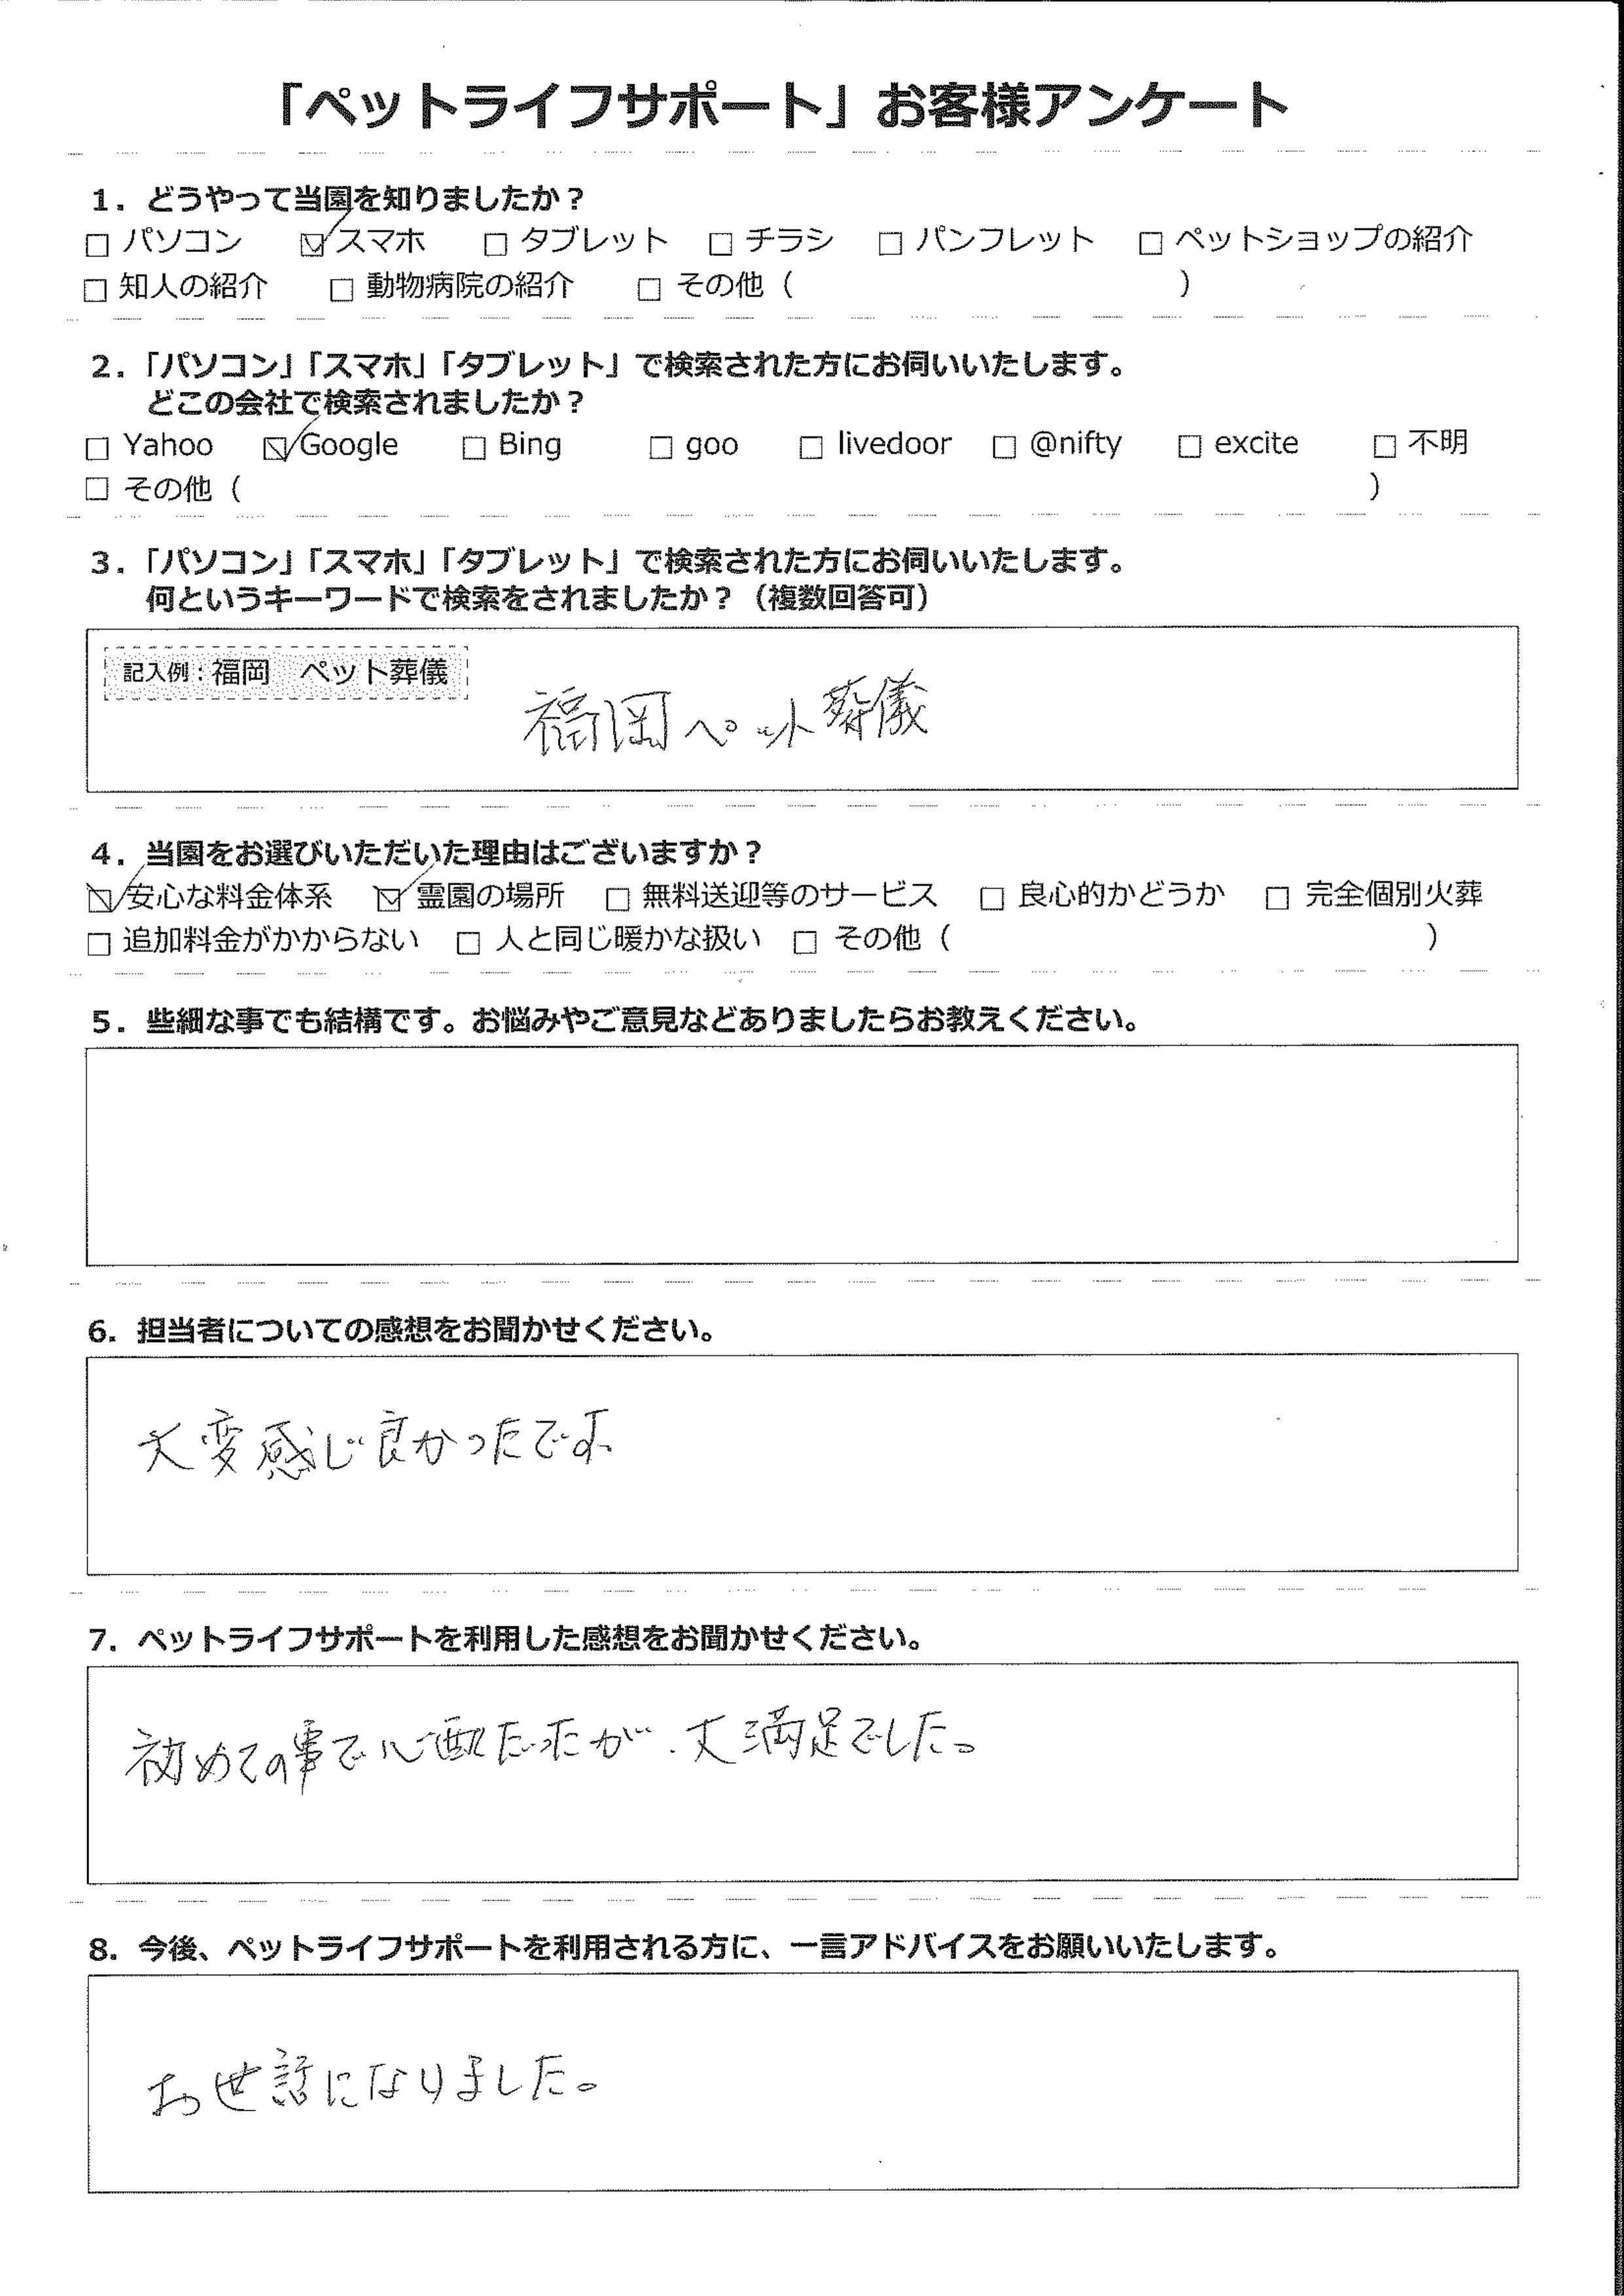 「ペットライフサポート」お客様アンケート
1．どうやって当園を知りましたか？
□ パソコン ☑ スマホ □ タブレット □ チラシ □ パンフレット □ ペットショップの紹介
□ 知人の紹介 □ 動物病院の紹介 □ その他（ ）
2．「パソコン」「スマホ」「タブレット」で検索された方にお伺いいたします。
どこの会社で検索されましたか？
□ Yahoo ☑ Google □ Bing □ goo □ livedoor □ @nifty □ excite □ 不明
□ その他（ ）
3．「パソコン」「スマホ」「タブレット」で検索された方にお伺いいたします。
何というキーワードで検索をされましたか？（複数回答可）
記入例：福岡　ペット葬儀
福岡ペット葬儀
4．当園をお選びいただいた理由はございますか？
☑ 安心な料金体系 ☑ 霊園の場所 □ 無料送迎等のサービス □ 良心的かどうか □ 完全個別火葬
□ 追加料金がかからない □ 人と同じ暖かな扱い □ その他（ ）
5．些細な事でも結構です。お悩みやご意見などありましたらお教えください。
6．担当者についての感想をお聞かせください。
大変感じ良かったです
7．ペットライフサポートを利用した感想をお聞かせください。
初めての事で心配だったが、大満足でした。
8．今後、ペットライフサポートを利用される方に、一言アドバイスをお願いいたします。
お世話になりました。